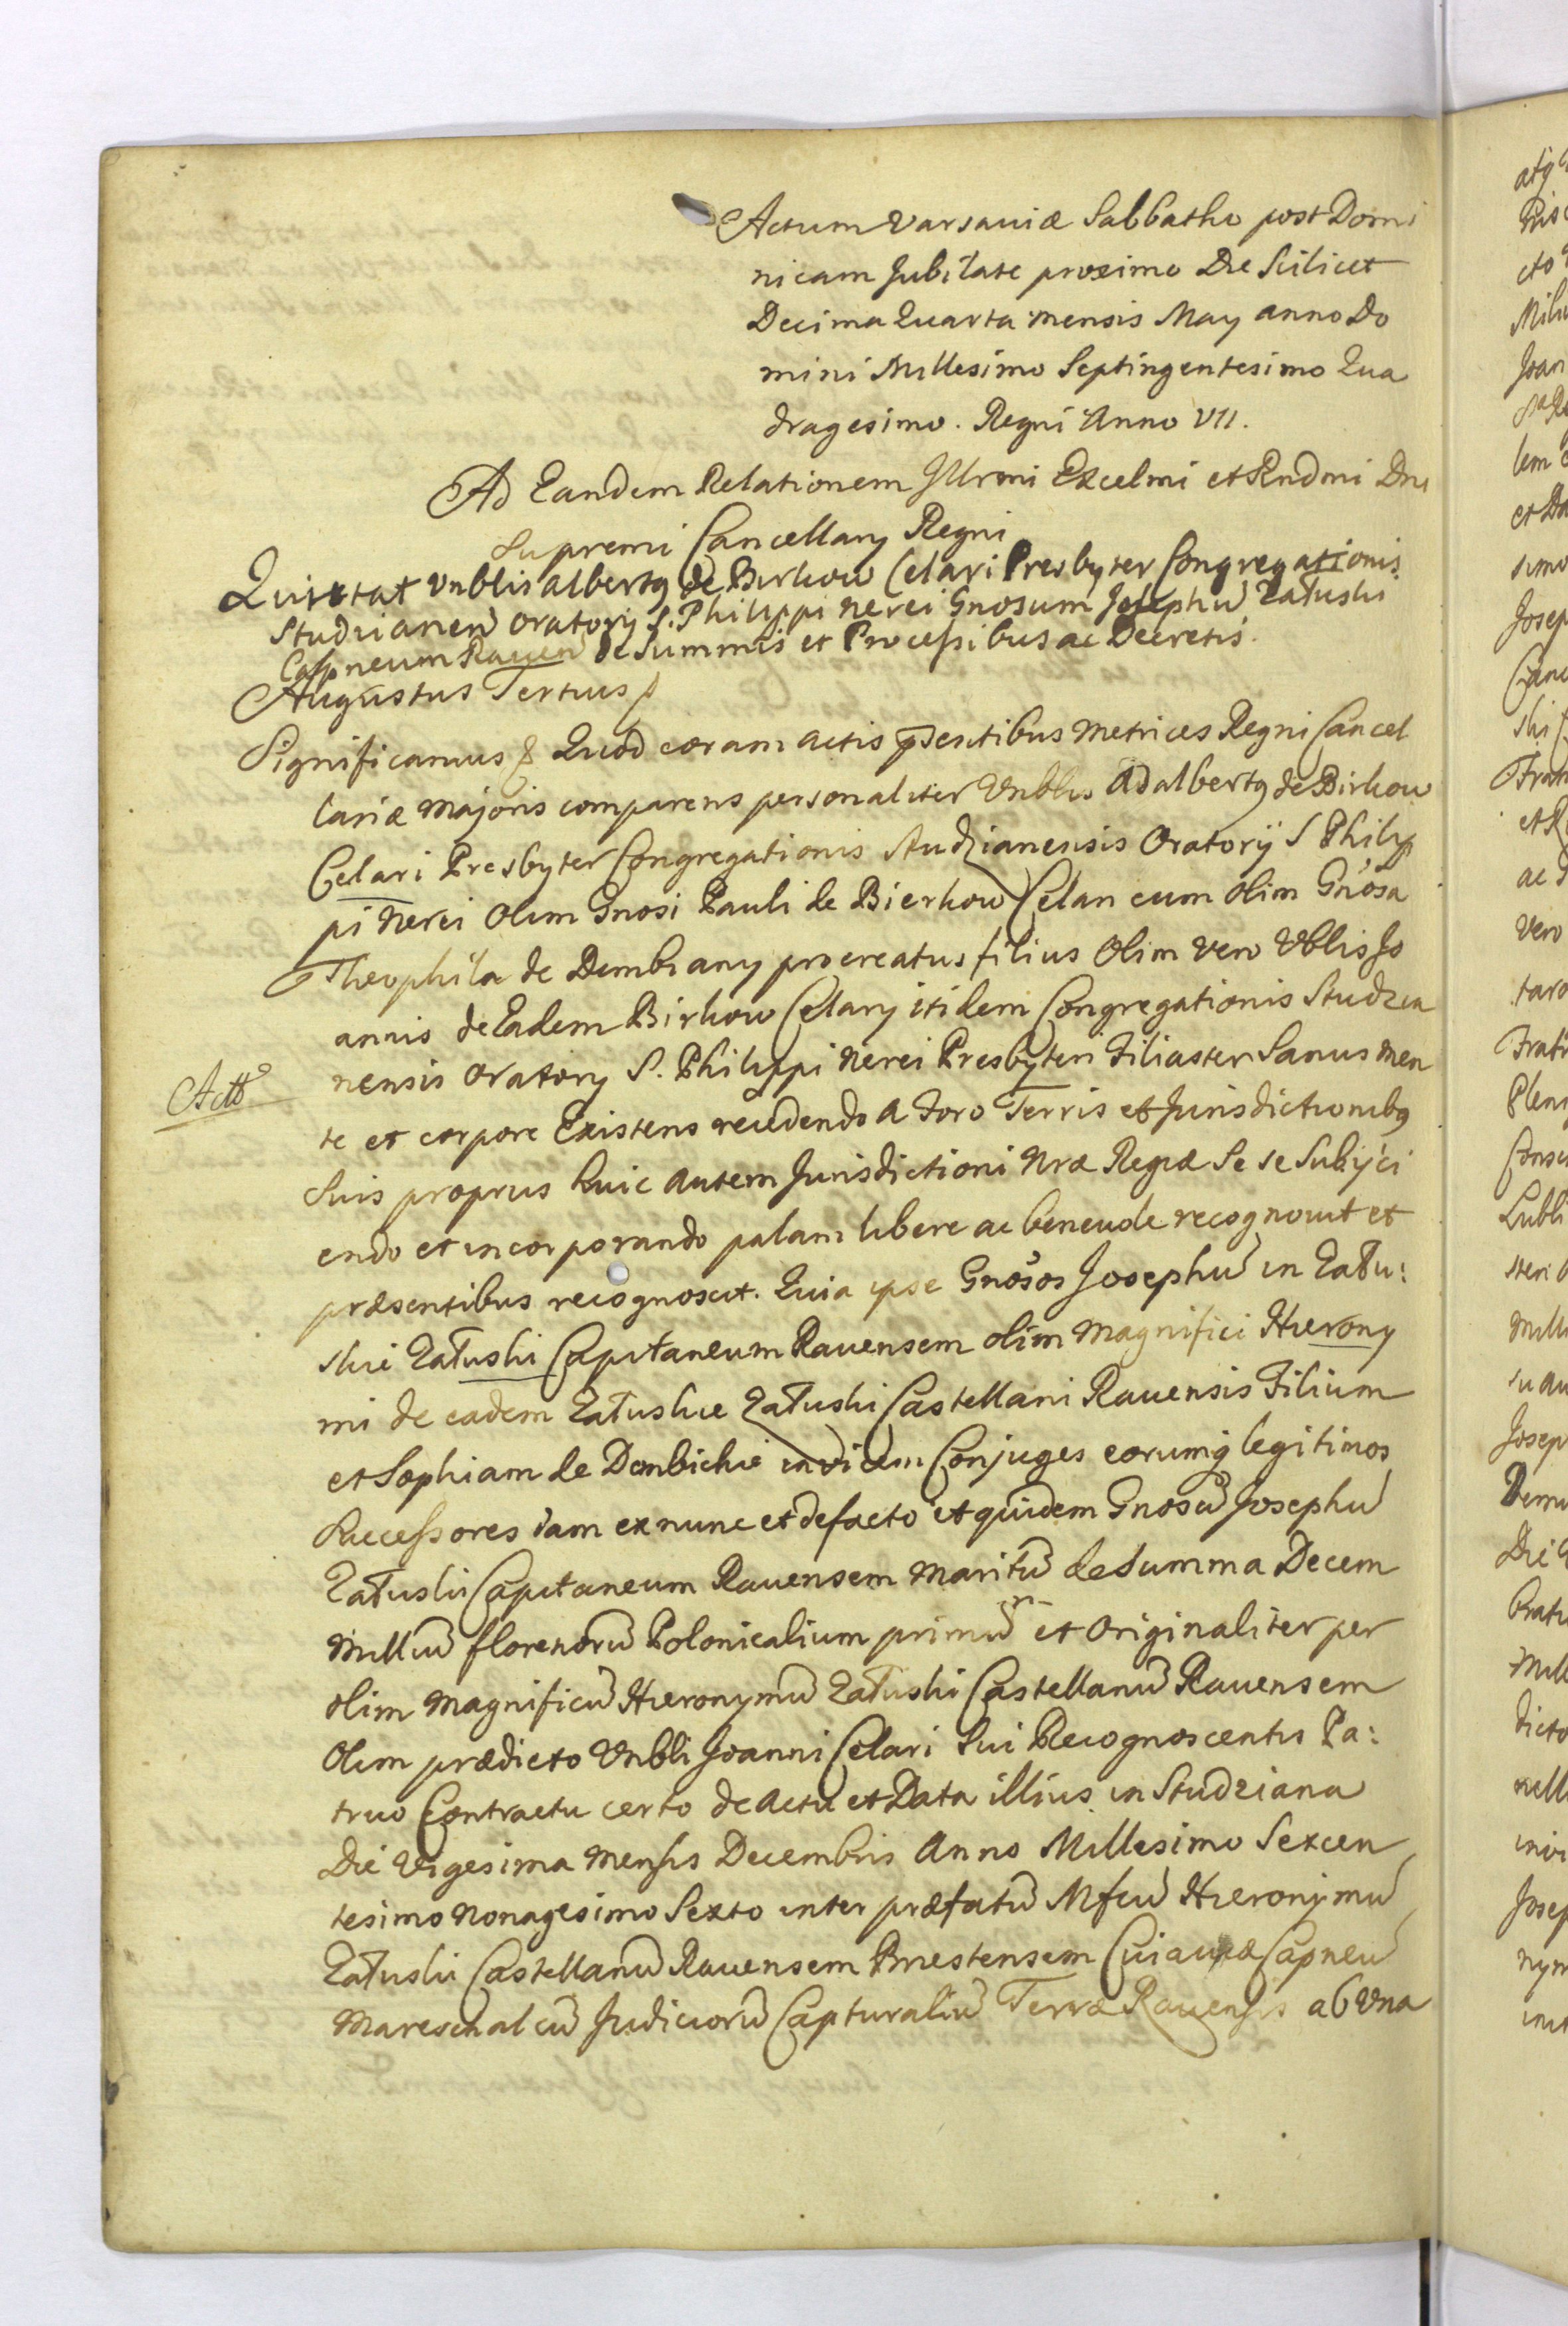 Actum Varsaviæ Sabbatho post Domi
nicam Jubilate proximo Die Scilicet
Decima Quarta mensis May anno Do
mini Millesimo Septingentesimo Qua
dragesimo. Regni Anno VII.
Ad Eandem Relationem Illrmi Excelmi et Rndmi Dni
Supremi Cancellary Regni
Quittat Vnblis albertg de Birkow Celari Presbyter Congregationis
Studzianen Oratory S. Philippi Nerei Gnosum Josephu Załuski
Capneum Raven de Summis et Processibus ac Decretis.
Augustus Tertius
Significamus & Quod coram actis psentibus Metrices Regni Cancel
lariæ Majoris comparens personaliter Vnblis Adalbertg de Birkow
Celari Presbyter Congregationis Studzianensis Oratorÿ S Philip
pi Nerei Olim Gnosi Pauli de Bierkow Celari cum olim Gnosa
Theophila de Dembiany procreatus filius Olim vero Vblis Jo
annis de Eadem Birkow Celary itidem Congregationis Studzia
nensis Oratory S. Philippi Nerei Presbyteri Filiaster Sanus men
te et corpore Existens recedendo a Foro Terris et Jurisdictionibg
Suis proprys huic autem Jurisdictioni Nræ Regiæ Se se Subijci
endo et incorporando palam libere ac benevole recognovit et
præsentibus recognoscit. Quia ipse Gnosos Josephu in Zału:
skie Załuski Capitaneum Ravensem olim Magnifici Hierony
mi de eadem Załuskie Załuski Castellani Ravensis Filium
et Sophiam de Dembickie invicem Conjuges eorumq legitimos
Successores iam ex nunc et de facto et quidem Gnosu Josephu
Załuski Capitaneum Ravensem Maritu de Summa Decem
Milliu florenoru Polonicalium primu et Originaliter per
olim Magnificu Hieronymu Załuski Castellanu Ravensem
Olim prædicto Vnbli Joanni Celari Sui Recognoscentis Pa:
truo Contractu certo de actu et Data illius in Studziana
Die Vigesima Mensis Decembris Anno Millesimo Sexcen
tesimo Nonagesimo Sexto inter præfatu Mfcu Hieronymu
Załuski Castellanu Ravensem Brestensem Cuiaviæ Capneu
Mareschalcu Judicioru Capturaliu Terræ Ravensis ab Vna